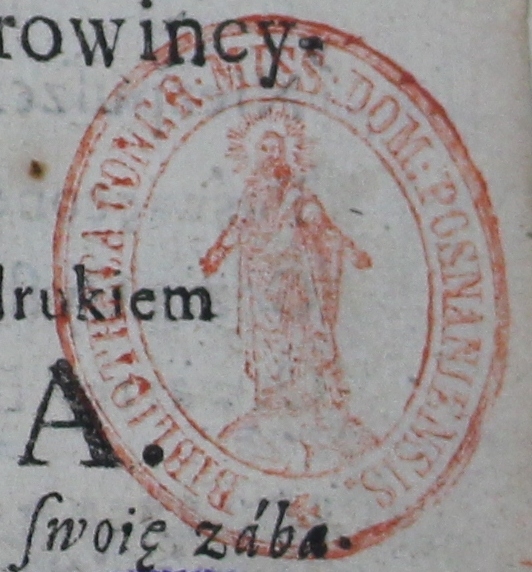 rowincy-
BIBLIOTHECA CONGR: MISS: DOM: POSNANIENSIS.
drukiem
A.
ſwoię zába-